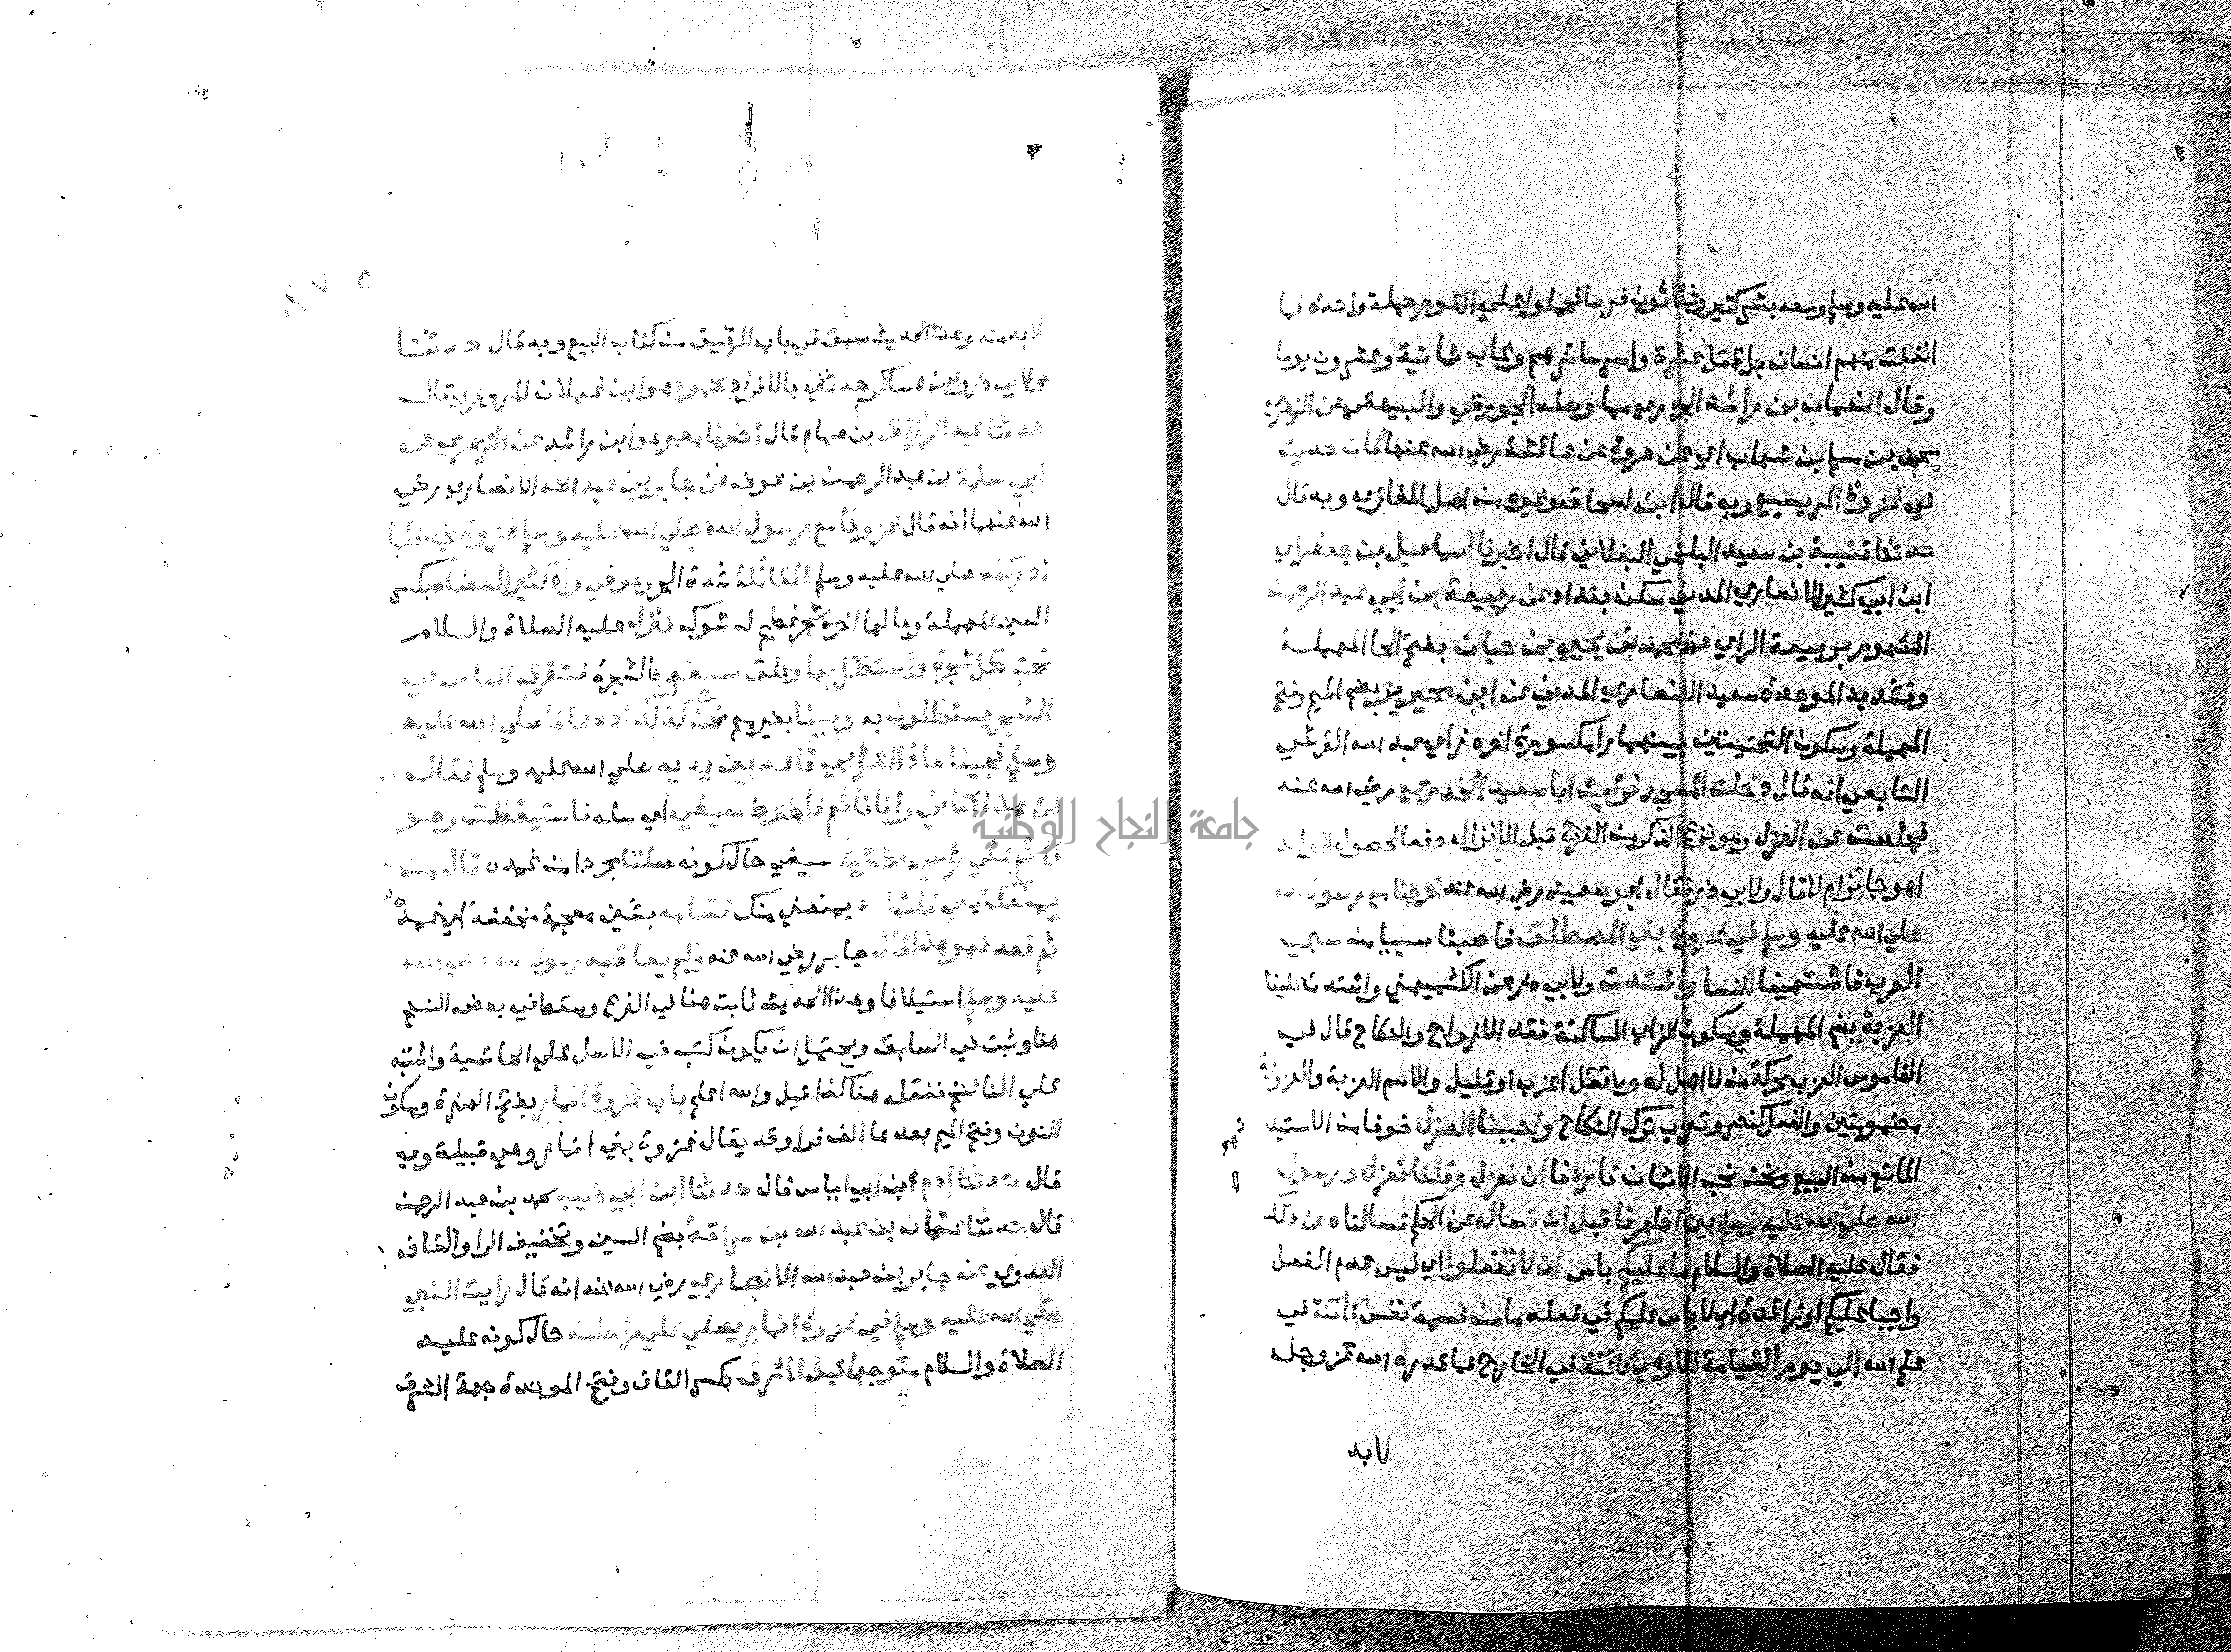 الله عليه وسلم وسعد بشر كثير وثلاثون فرسا فحملوا علي القوم حملة واحدة فما
انفلت منهم انسان بل قتل عشرة واسر سائرهم وغاب ثمانية وعشرون يوما
وقال النعمان بن راشد الجزري مما وصله الجوزقي والبيهقي عن الزهري
محمد بن مسلم بن شهاب اي عن عروة عن عائشة رضي الله عنها كان حديث
في غزوة المريسيع وبه قال ابن اسحاق وغيره من اهل المغازي وبه قال
حدثنا قتيبة بن سعيد البلخي البغلاني قال اخبرنا اسماعيل بن جعفر اي
ابن ابي كثير الانصاري المدني سكن بغداد عن ربيعة بن ابي عبد الرحمن
المشهور بربيعة الراي عن محمد بن يحيي بن حبان بفتح الحا المهملة
وتشديد الموحدة سعيد الانصاري المدني عن ابن محيريز بضم الميم وفتح
المهملة وسكون التحتيتين بينهما را مكسورة اخره زاي عبد الله القرشي
التابعي انه قال دخلت المسجد فرايت ابا سعيد الخدري رضي الله عنه
فجلست عن العزل وهو نزع الذكر من الفرج قبل الانزال دفعا لحصول الولد
اهو جائز ام لا قال ولابي ذر فقال ابو سعيد رضي الله عنه خرجنا مع رسول الله
صلي الله عليه وسلم في غزوة بني المصطلق فاصبنا سبيا من سبي
العرب فاشتهينا النسا واشتدت ولابي ذر عن الكشميهني واشتد علينا
العزبة بضم المهملة وسكون الزاي الساكنة فقد الازواج والنكاح قال في
القاموس العزب محركة من لا اهل له ولا تقل اعزب او قليل والاسم العزبة والعزوبة
مضمومتين والفعل كنصر وتعزب ترك النكاح واحببنا العزل خوفا من الاستيلاد
المانع من البيع ونحن نحب الاثمان فاردنا ان نعزل وقلنا نعزل ورسول
الله صلي الله عليه وسلم بين اظهرنا قبل ان نساله عن الحكم فسالناه عن ذلك
فقال عليه الصلاة والسلام ما عليكم باس ان لا تفعلوا اي ليس عدم الفعل
واجبا عليكم او زائدة اي لا باس عليكم في فعله ما من نسمة نفس كائنة في
علم الله الي يوم القيامة الا وهي كائنة في الخارج مما قدره الله عز وجل
لابد
لابد منه وهذا الحديث سبق في باب الرقيق من كتاب البيع وبه قال حدثنا
ولابي ذر وابن عساكر حدثني بالافراد محمود هو ابن غيلان المروزي قال
حدثنا عبد الرزاق بن همام قال اخبرنا معمر هو ابن راشد عن الزهري عن
ابي سلمة بن عبد الرحمن بن عوف عن جابر بن عبد الله الانصاري رضي
الله عنهما انه قال غزونا مع رسول الله صلي الله عليه وسلم غزوة نجد فلما
ادركته صلي الله عليه وسلم القائلة شدة الحر وهو في واد كثير العضاه بكسر
العين المهملة وبالها اخره شجر عظيم له شوك فنزل عليه الصلاة والسلام
تحت ظل شجرة واستظل بها وعلق سيفه بالشجرة فتفرق الناس في
الشجر يستظلون به وبينا بغير ميم نحن كذلك اذ دعانا صلي الله عليه
وسلم فجينا فاذا اعرابي قاعد بين يديه صلي الله عليه وسلم فقال
ان هذا اتاني وانا نائم فاخترط سيفي اي سله فاستيقظت وهو
قائم علي راسي مخترط سيفي حال كونه صلتا مجردا من غمده قال من
يمنعك مني قلت الله يمنعني منك فشامه بشين معجمة مخففة اي غمده
ثم قعد فهو هذا قال جابر رضي الله عنه ولم يعاقبه رسول الله صلي الله
عليه وسلم استيلافا وهذا الحديث ثابت هنا في الفرع وسقط في بعض النسخ
هنا وثبت في السابق ويحتمل ان يكون كتب في الاصل علي الحاشية واشتبه
علي الناسخ فنقله هنا كذا قيل والله اعلم باب غزوة انمار بفتح الهمزة وسكون
النون وفتح الميم بعدها الف فرا وقد يقال غزوة بني انمار وهي قبيلة وبه
قال حدثنا ادم ابن ابي اياس قال حدثنا ابن ابي ذيب محمد بن عبد الرحمن
قال حدثنا عثمان بن عبد الله بن سراقة بضم السين وتخفيف الرا والقاف
العدوي عن جابر بن عبد الله الانصاري رضي الله عنه انه قال رايت النبي
صلي الله عليه وسلم في غزوة انمار يصلي علي راحلته حال كونه عليه
الصلاة والسلام متوجها قبل المشرق بكسر القاف وفتح الموحدة جهة الشرق
جامعة النجاح الوطنية